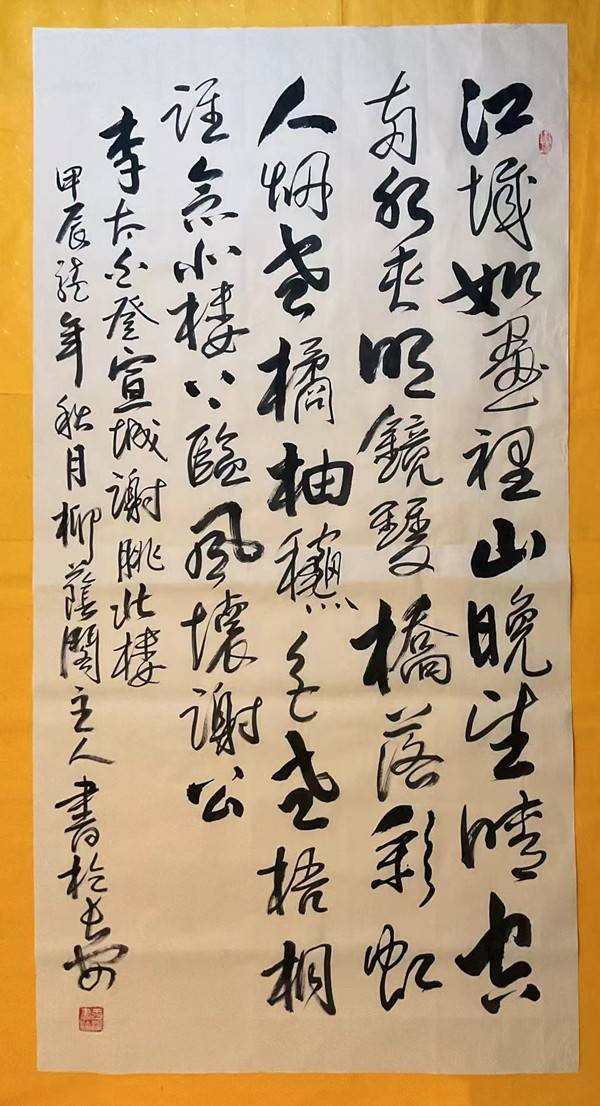 江城如畫裡山晚望晴空
两水夹明鏡雙橋落彩虹
人烟寒橘柚穐色老梧桐
誰念北樓上臨風懷謝公
李太白登宣城謝朓北樓
甲辰龍年秋月柳蔭閣主人書於長安